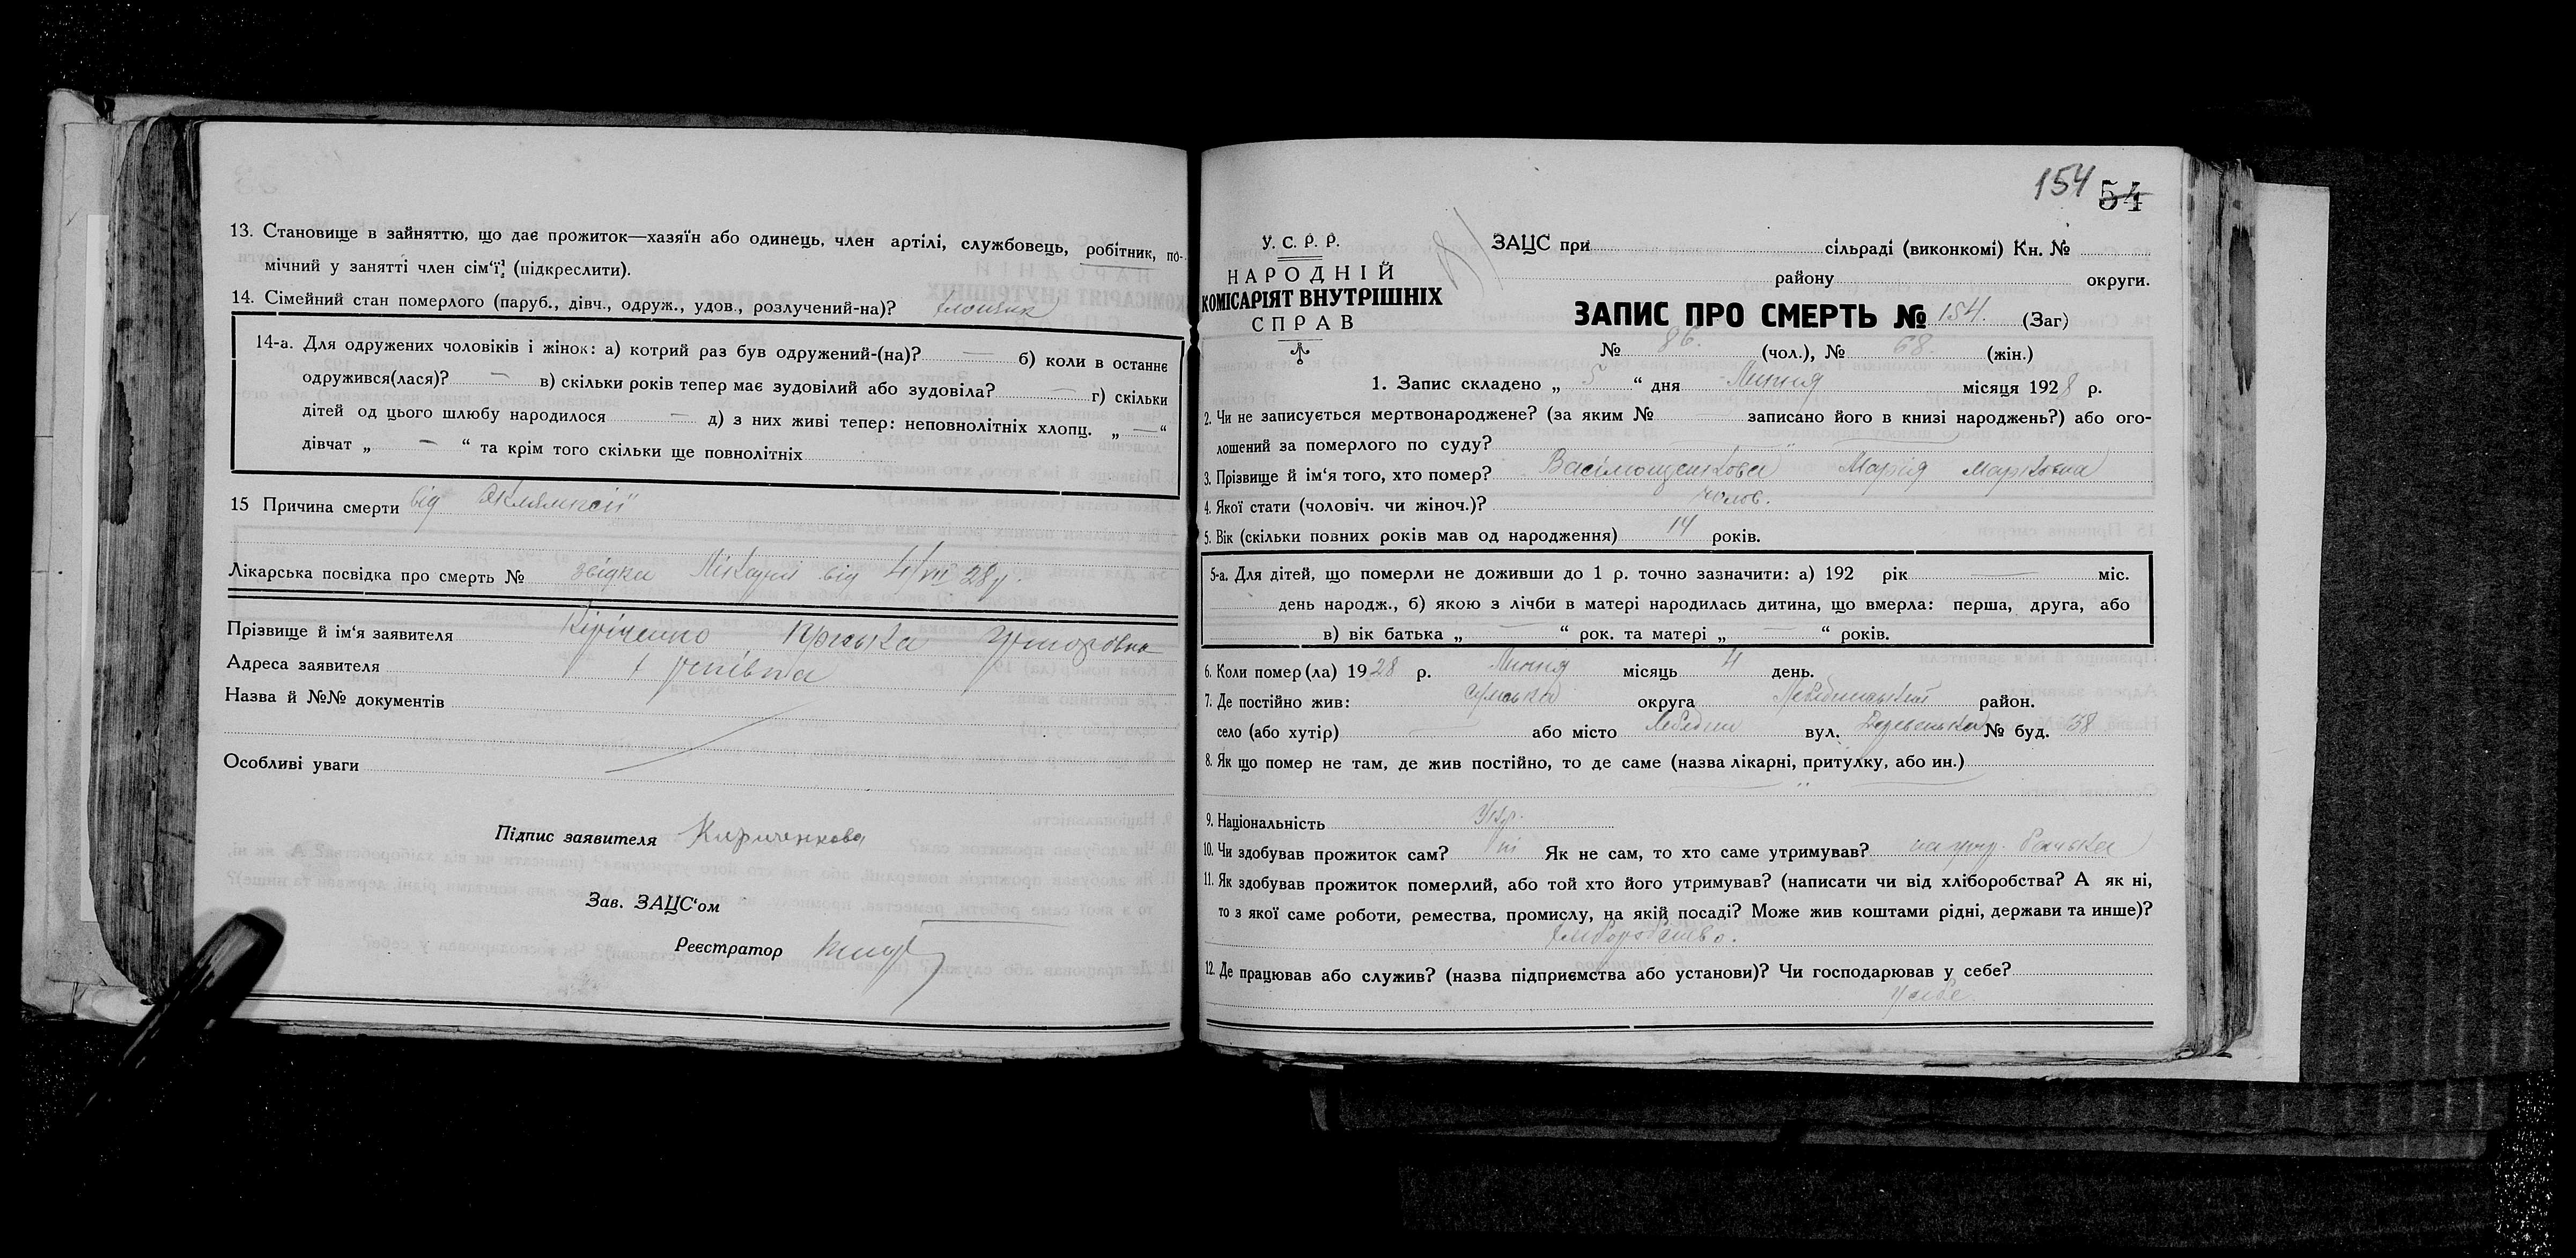 13. Становище в зайняттю, що дає прожиток—хазяїн або одинець, член артілі, службовець, робітник, по-
мічний у занятті член сім'ї (підкреслити).
14. Сімейний стан померлого (паруб., дівч., одруж., удов., розлучений-на)?
14-а. Для одружених чоловіків і жінок: а) котрий раз був одружений-(на)? — б) коли в останнє
одружився(лася)? — в) скільки років тепер має зудовілий або зудовіла? — г) скільки
дітей од цього шлюбу народилося — д) з них живі тепер: неповнолітніх хлопц. „ — “
дівчат „ — “ та крім того скільки ще повнолітніх
15 Причина смерти від
Лікарська посвідка про смерть № від 4/VII 28 р.
Прізвище й ім'я заявителя Кіріченко
Адреса заявителя
Назва й №№ документів
Особливі уваги
Підпис заявителя Кириченкова
Зав. ЗАЦС'ом
Реєстратор
154 54
У. С. Р. Р.
НАРОДНІЙ
КОМІСАРІЯТ ВНУТРІШНІХ
СПРАВ
ЗАЦС при сільраді (виконкомі) Кн. №
району округи.
ЗАПИС ПРО СМЕРТЬ № 154. (Заг)
№ 86. (чол.), № 68. (жін.)
1. Запис складено „ 5 “ дня Липня місяця 1928 р.
2. Чи не записується мертвонароджене? (за яким № — записано його в книзі народжень?) або ого-
лошений за померлого по суду?
3. Прізвище й ім'я того, хто помер? Марія
4. Якої стати (чоловіч. чи жіноч.)? чолов.
5. Вік (скільки повних років мав од народження) 14 років.
5-а. Для дітей, що померли не доживши до 1 р. точно зазначити: а) 192 рік — міс.
день народж., б) якою з лічби в матері народилась дитина, що вмерла: перша, друга, або
в) вік батька „ — “ рок. та матері „ — “ років.
6. Коли помер(ла) 1928 р. Липня місяць 4 день.
7. Де постійно жив: Сумська округа Лебединський район.
село (або хутір) — або місто Лебедин вул. № буд. 58
8. Як що помер не там, де жив постійно, то де саме (назва лікарні, притулку, або ин.)
9. Національність Укр.
10. Чи здобував прожиток сам? ні Як не сам, то хто саме утримував? батька
11. Як здобував прожиток померлий, або той хто його утримував? (написати чи від хліборобства? А як ні,
то з якої саме роботи, ремества, промислу, на якій посаді? Може жив коштами рідні, держави та инше)?
хліборобство.
12. Де працював або служив? (назва підприємства або установи)? Чи господарював у себе?
у себе